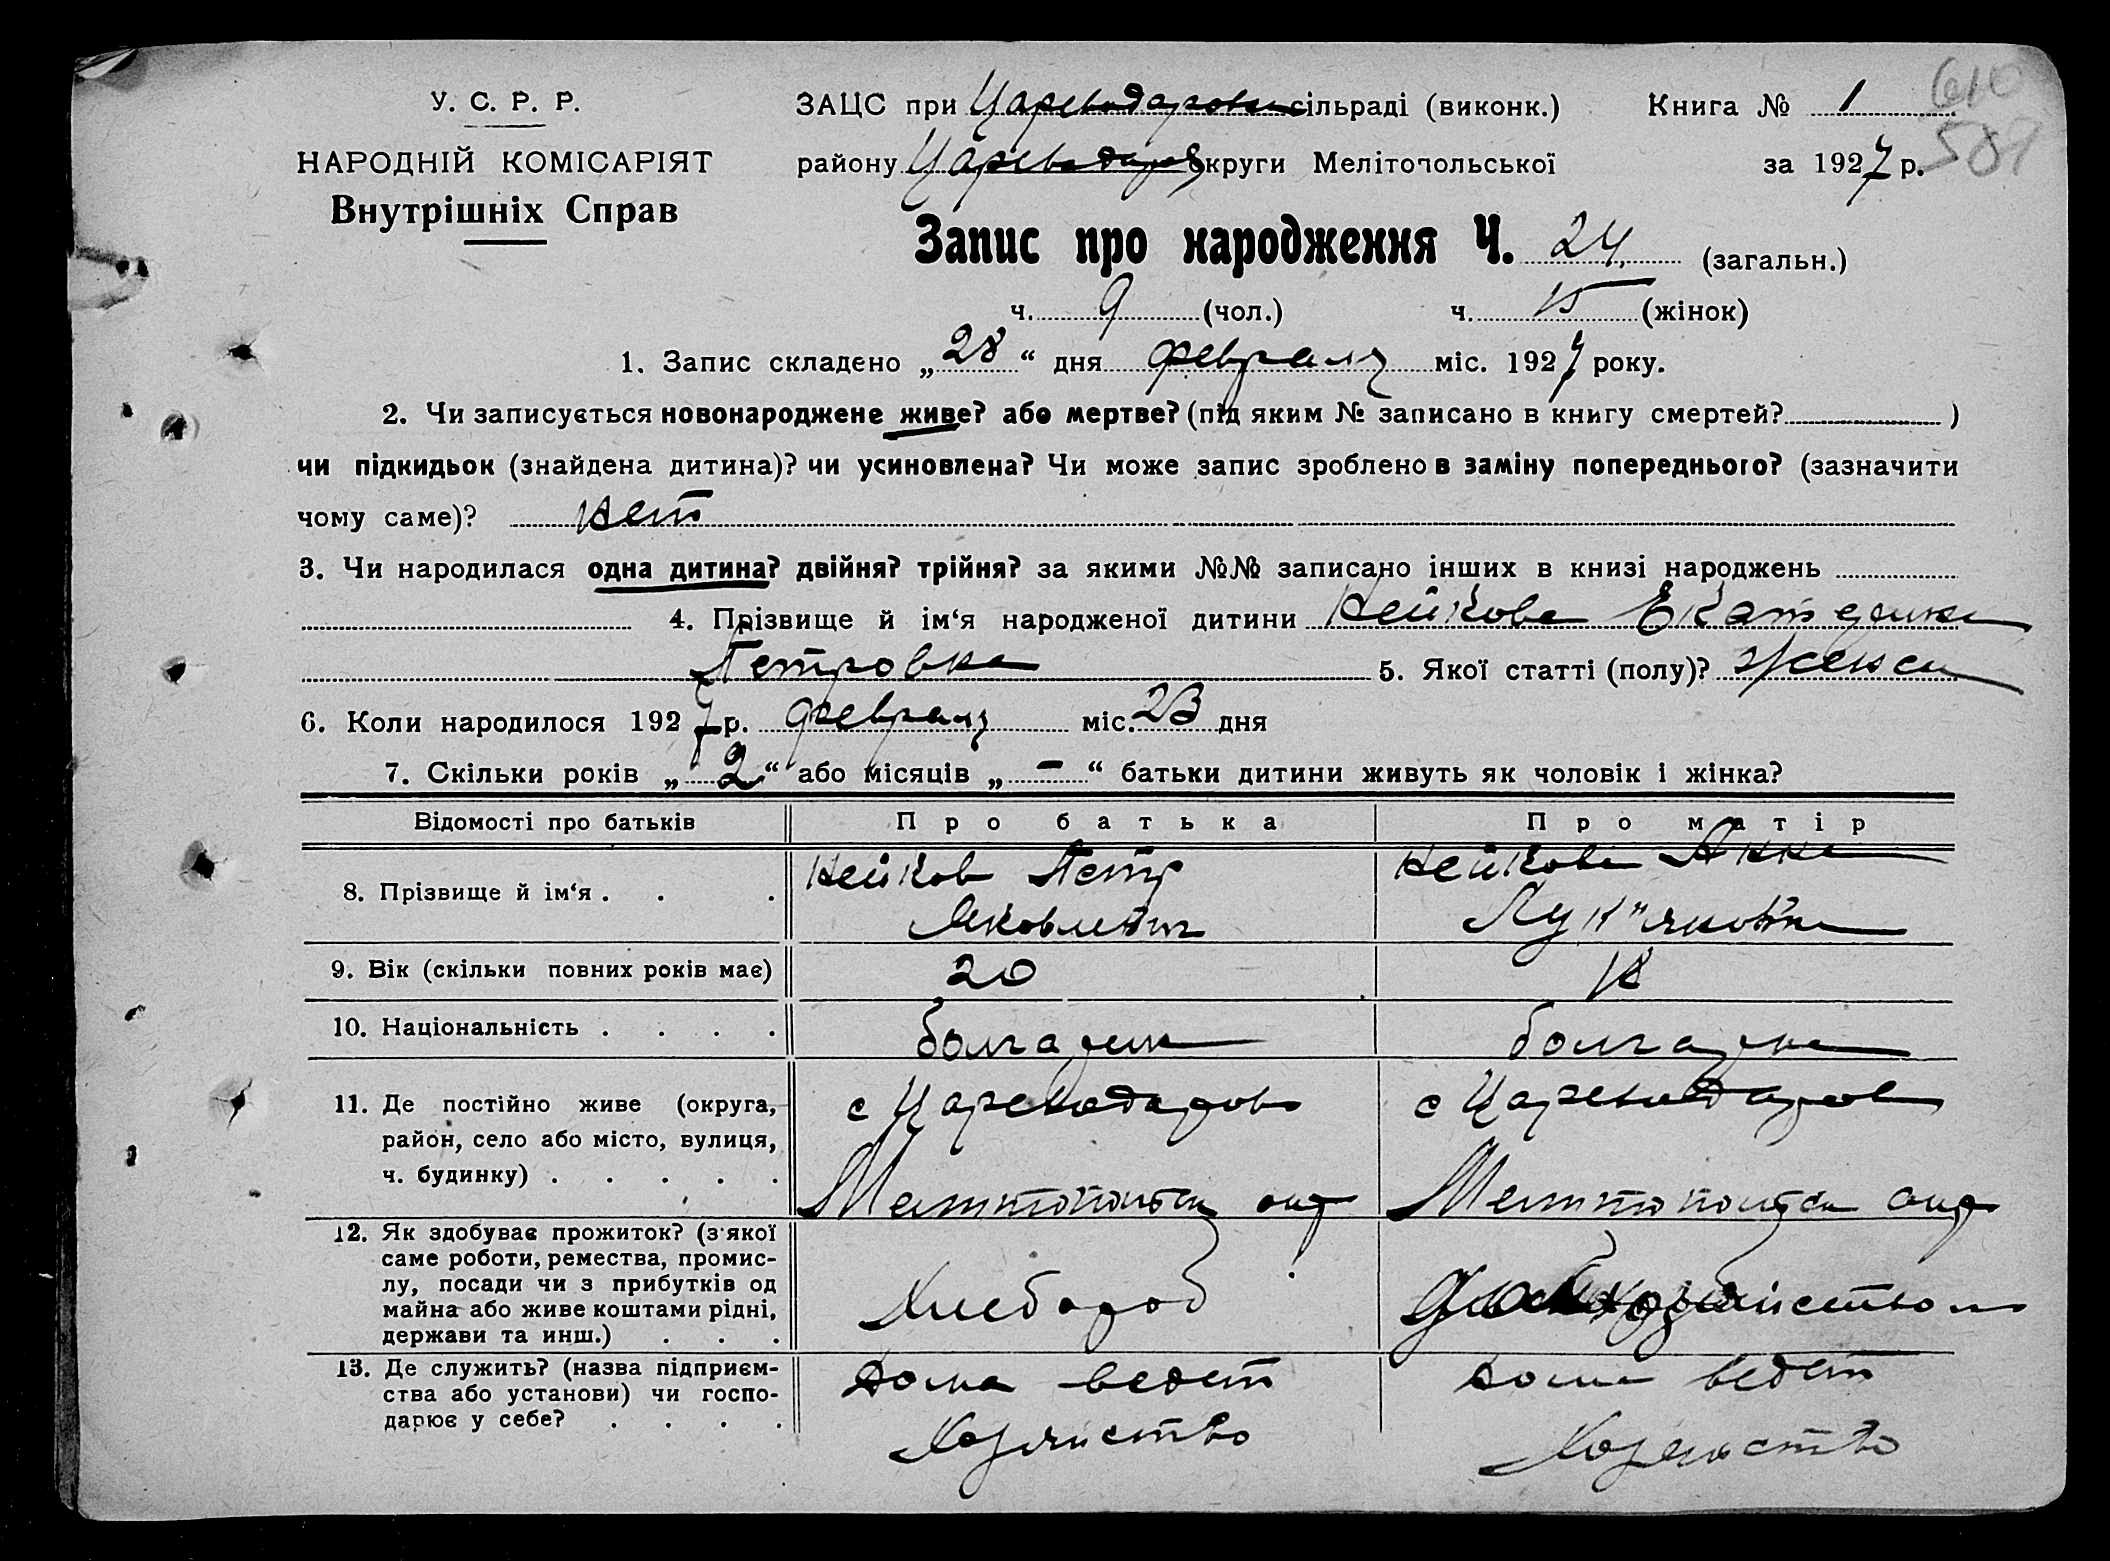 610
У. С. Р. Р. ЗАЦС при Цареводаровск сільраді (виконк.) Книга № 1
589
НАРОДНІЙ КОМІСАРІЯТ району Цареводар округи Мелітопольської за 1927 р.
Внутрішніх Справ
Запис про народження Ч. 24 (загальн.)
ч. 9 (чол.) ч. 15 (жінок)
1. Запис складено „28“ дня февраля міс. 1927 року.
2. Чи записується новонароджене живе? або мертве? (під яким № записано в книгу смертей? )
чи підкидьок (знайдена дитина)? чи усиновлена? Чи може запис зроблено в заміну попереднього? (зазначити
чому саме)? нет
3. Чи народилася одна дитина? двійня? трійня? за якими №№ записано інших в книзі народжень
4. Прізвище й ім‘я народженої дитини Нейкова Екатерина
Петровна 5. Якої статті (полу)? женск
6. Коли народилося 1927 р. февраля міс. 23 дня
7. Скільки років „2“ або місяців „-“ батьки дитини живуть як чоловік і жінка?
Відомості про батьків Про батька Про матір
8. Прізвище й ім‘я . . . Нейков Петр Нейкова Анна
Яковлевич Лук"яновна
9. Вік (скільки повних років має) 20 18
10. Національність . . . . болгарин болгарка
11. Де постійно живе (округа, с Цареводаровка с Цареводаров
район, село або місто, вулиця,
ч. будинку) . . . . . Мелитопольск окр Мелитопольск окр
12. Як здобуває прожиток? (з'якої
саме роботи, ремества, промис-
лу, посади чи з прибутків од
майна або живе коштами рідні, Хлебороб
держави та инш.) . . .
13. Де служить? (назва підприєм- Дома ведет дома ведет
ства або установи) чи госпо-
дарює у себе? . . . . Хозяйство Хозяйство